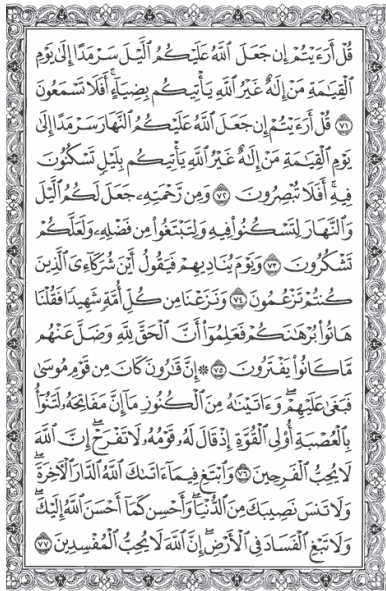 قُلْ أَرَءَيْتُمْ إِن جَعَلَ ٱللَّهُ عَلَيْكُمُ ٱلَّيْلَ سَرْمَدًا إِلَىٰ يَوْمِ
ٱلْقِيَٰمَةِ مَنْ إِلَٰهٌ غَيْرُ ٱللَّهِ يَأْتِيكُم بِضِيَآءٍ ۖ أَفَلَا تَسْمَعُونَ
٧١ قُلْ أَرَءَيْتُمْ إِن جَعَلَ ٱللَّهُ عَلَيْكُمُ ٱلنَّهَارَ سَرْمَدًا إِلَىٰ
يَوْمِ ٱلْقِيَٰمَةِ مَنْ إِلَٰهٌ غَيْرُ ٱللَّهِ يَأْتِيكُم بِلَيْلٍ تَسْكُنُونَ
فِيهِ ۖ أَفَلَا تُبْصِرُونَ ٧٢ وَمِن رَّحْمَتِهِۦ جَعَلَ لَكُمُ ٱلَّيْلَ
وَٱلنَّهَارَ لِتَسْكُنُوا۟ فِيهِ وَلِتَبْتَغُوا۟ مِن فَضْلِهِۦ وَلَعَلَّكُمْ
تَشْكُرُونَ ٧٣ وَيَوْمَ يُنَادِيهِمْ فَيَقُولُ أَيْنَ شُرَكَآءِىَ ٱلَّذِينَ
كُنتُمْ تَزْعُمُونَ ٧٤ وَنَزَعْنَا مِن كُلِّ أُمَّةٍ شَهِيدًا فَقُلْنَا
هَاتُوا۟ بُرْهَٰنَكُمْ فَعَلِمُوٓا۟ أَنَّ ٱلْحَقَّ لِلَّهِ وَضَلَّ عَنْهُم
مَّا كَانُوا۟ يَفْتَرُونَ ٧٥ ۞ إِنَّ قَٰرُونَ كَانَ مِن قَوْمِ مُوسَىٰ
فَبَغَىٰ عَلَيْهِمْ ۖ وَءَاتَيْنَٰهُ مِنَ ٱلْكُنُوزِ مَآ إِنَّ مَفَاتِحَهُۥ لَتَنُوٓأُ
بِٱلْعُصْبَةِ أُو۟لِى ٱلْقُوَّةِ إِذْ قَالَ لَهُۥ قَوْمُهُۥ لَا تَفْرَحْ ۖ إِنَّ ٱللَّهَ
لَا يُحِبُّ ٱلْفَرِحِينَ ٧٦ وَٱبْتَغِ فِيمَآ ءَاتَىٰكَ ٱللَّهُ ٱلدَّارَ ٱلْءَاخِرَةَ ۖ
وَلَا تَنسَ نَصِيبَكَ مِنَ ٱلدُّنْيَا ۖ وَأَحْسِن كَمَآ أَحْسَنَ ٱللَّهُ إِلَيْكَ ۖ
وَلَا تَبْغِ ٱلْفَسَادَ فِى ٱلْأَرْضِ ۖ إِنَّ ٱللَّهَ لَا يُحِبُّ ٱلْمُفْسِدِينَ ٧٧